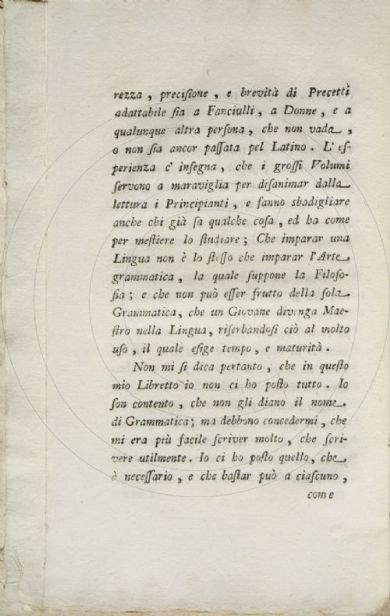 rezza, preciſione, e brevità di Precetti
adattabile ſia a Fanciulli, a Donne, e a
qualunque altra perſona, che non vada,
o non ſia ancor paſſata pel Latino. L' eſ-
perienza c' inſegna, che i groſſi Volumi
ſervono a maraviglia per diſanimar dalla
lettura i Principianti, e fanno sbadigliare
anche chi già ſa qualche coſa, ed ha come
per meſtiere lo ſtudiare; Che imparar una
Lingua non è lo ſteſſo che imparar l'Arte
grammatica, la quale ſuppone la Filoſo-
fia; e che non può eſſer frutto della ſola
Grammatica, che un Giovane divenga Mae-
ſtro nella Lingua, riſerbandoſi ciò al molto
uſo, il quale eſige tempo, e maturità.
Non mi ſi dica pertanto, che in queſto
mio Libretto io non ci ho poſto tutto. Io
ſon contento, che non gli diano il nome
di Grammatica; ma debbono concedermi, che
mi era più facile ſcriver molto, che ſcri-
vere utilmente. Io ci ho poſto quello, che
è neceſſario, e che baſtar può a ciaſcuno,
come